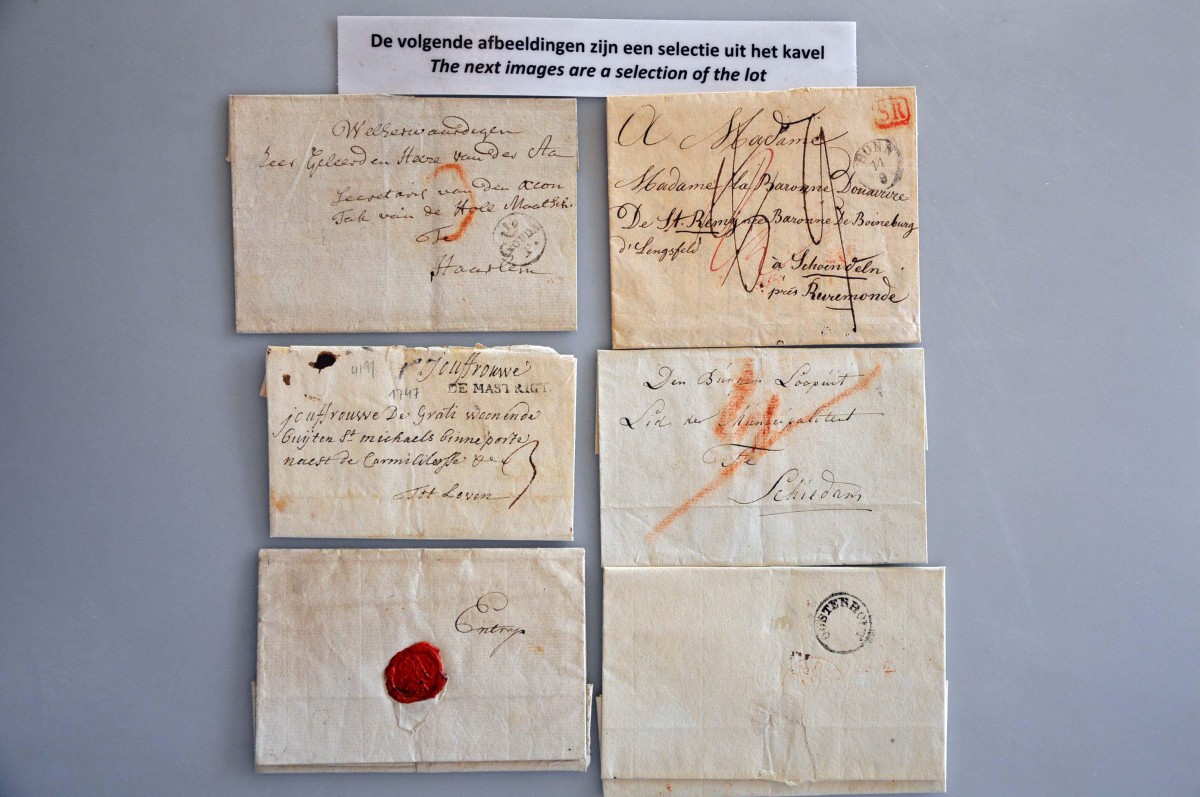 De volgende afbeeldingen zijn een selectie uit het kavel
The next images are a selection of the lot
Weleerwaardigen
Zeer Geleerden Heere van der Aa
Secretaris van den
Tak van de Holl Maatsch.
Te
Haarlem
SR
A Madame
BONN
14
9
Madame la Baronne Douairire
De St. Remy née Baronne De Boineburg
d'Lengsfeld
à Schoendeln
près Ruremonde
jouffrouwe
DE MASTRIGT.
1747
jouffrouwe De Grati woonende
buijten St michaels binneporte
naest de
Tot Loven
3
Den Burger Loopuit
Lid der Municipaliteit
Te
Schiedam
OOSTERHOUT